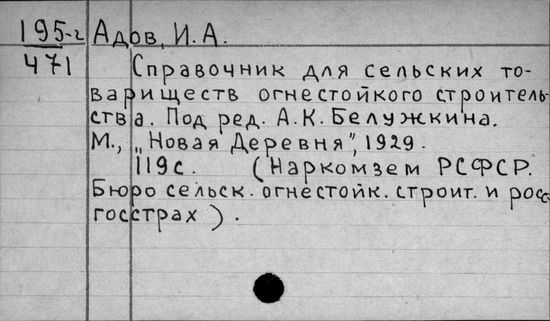 195-г Адов, И.А.
471 Справочник для сельских то-
вариществ огнестойкого строитель-
ства. Под ред. А.К. Белужкина.
М., „Новая Деревня", 1929.
119с. (Наркомзем РСФСР.
Бюро сельск. огнестойк. строит. и росс-
госстрах).